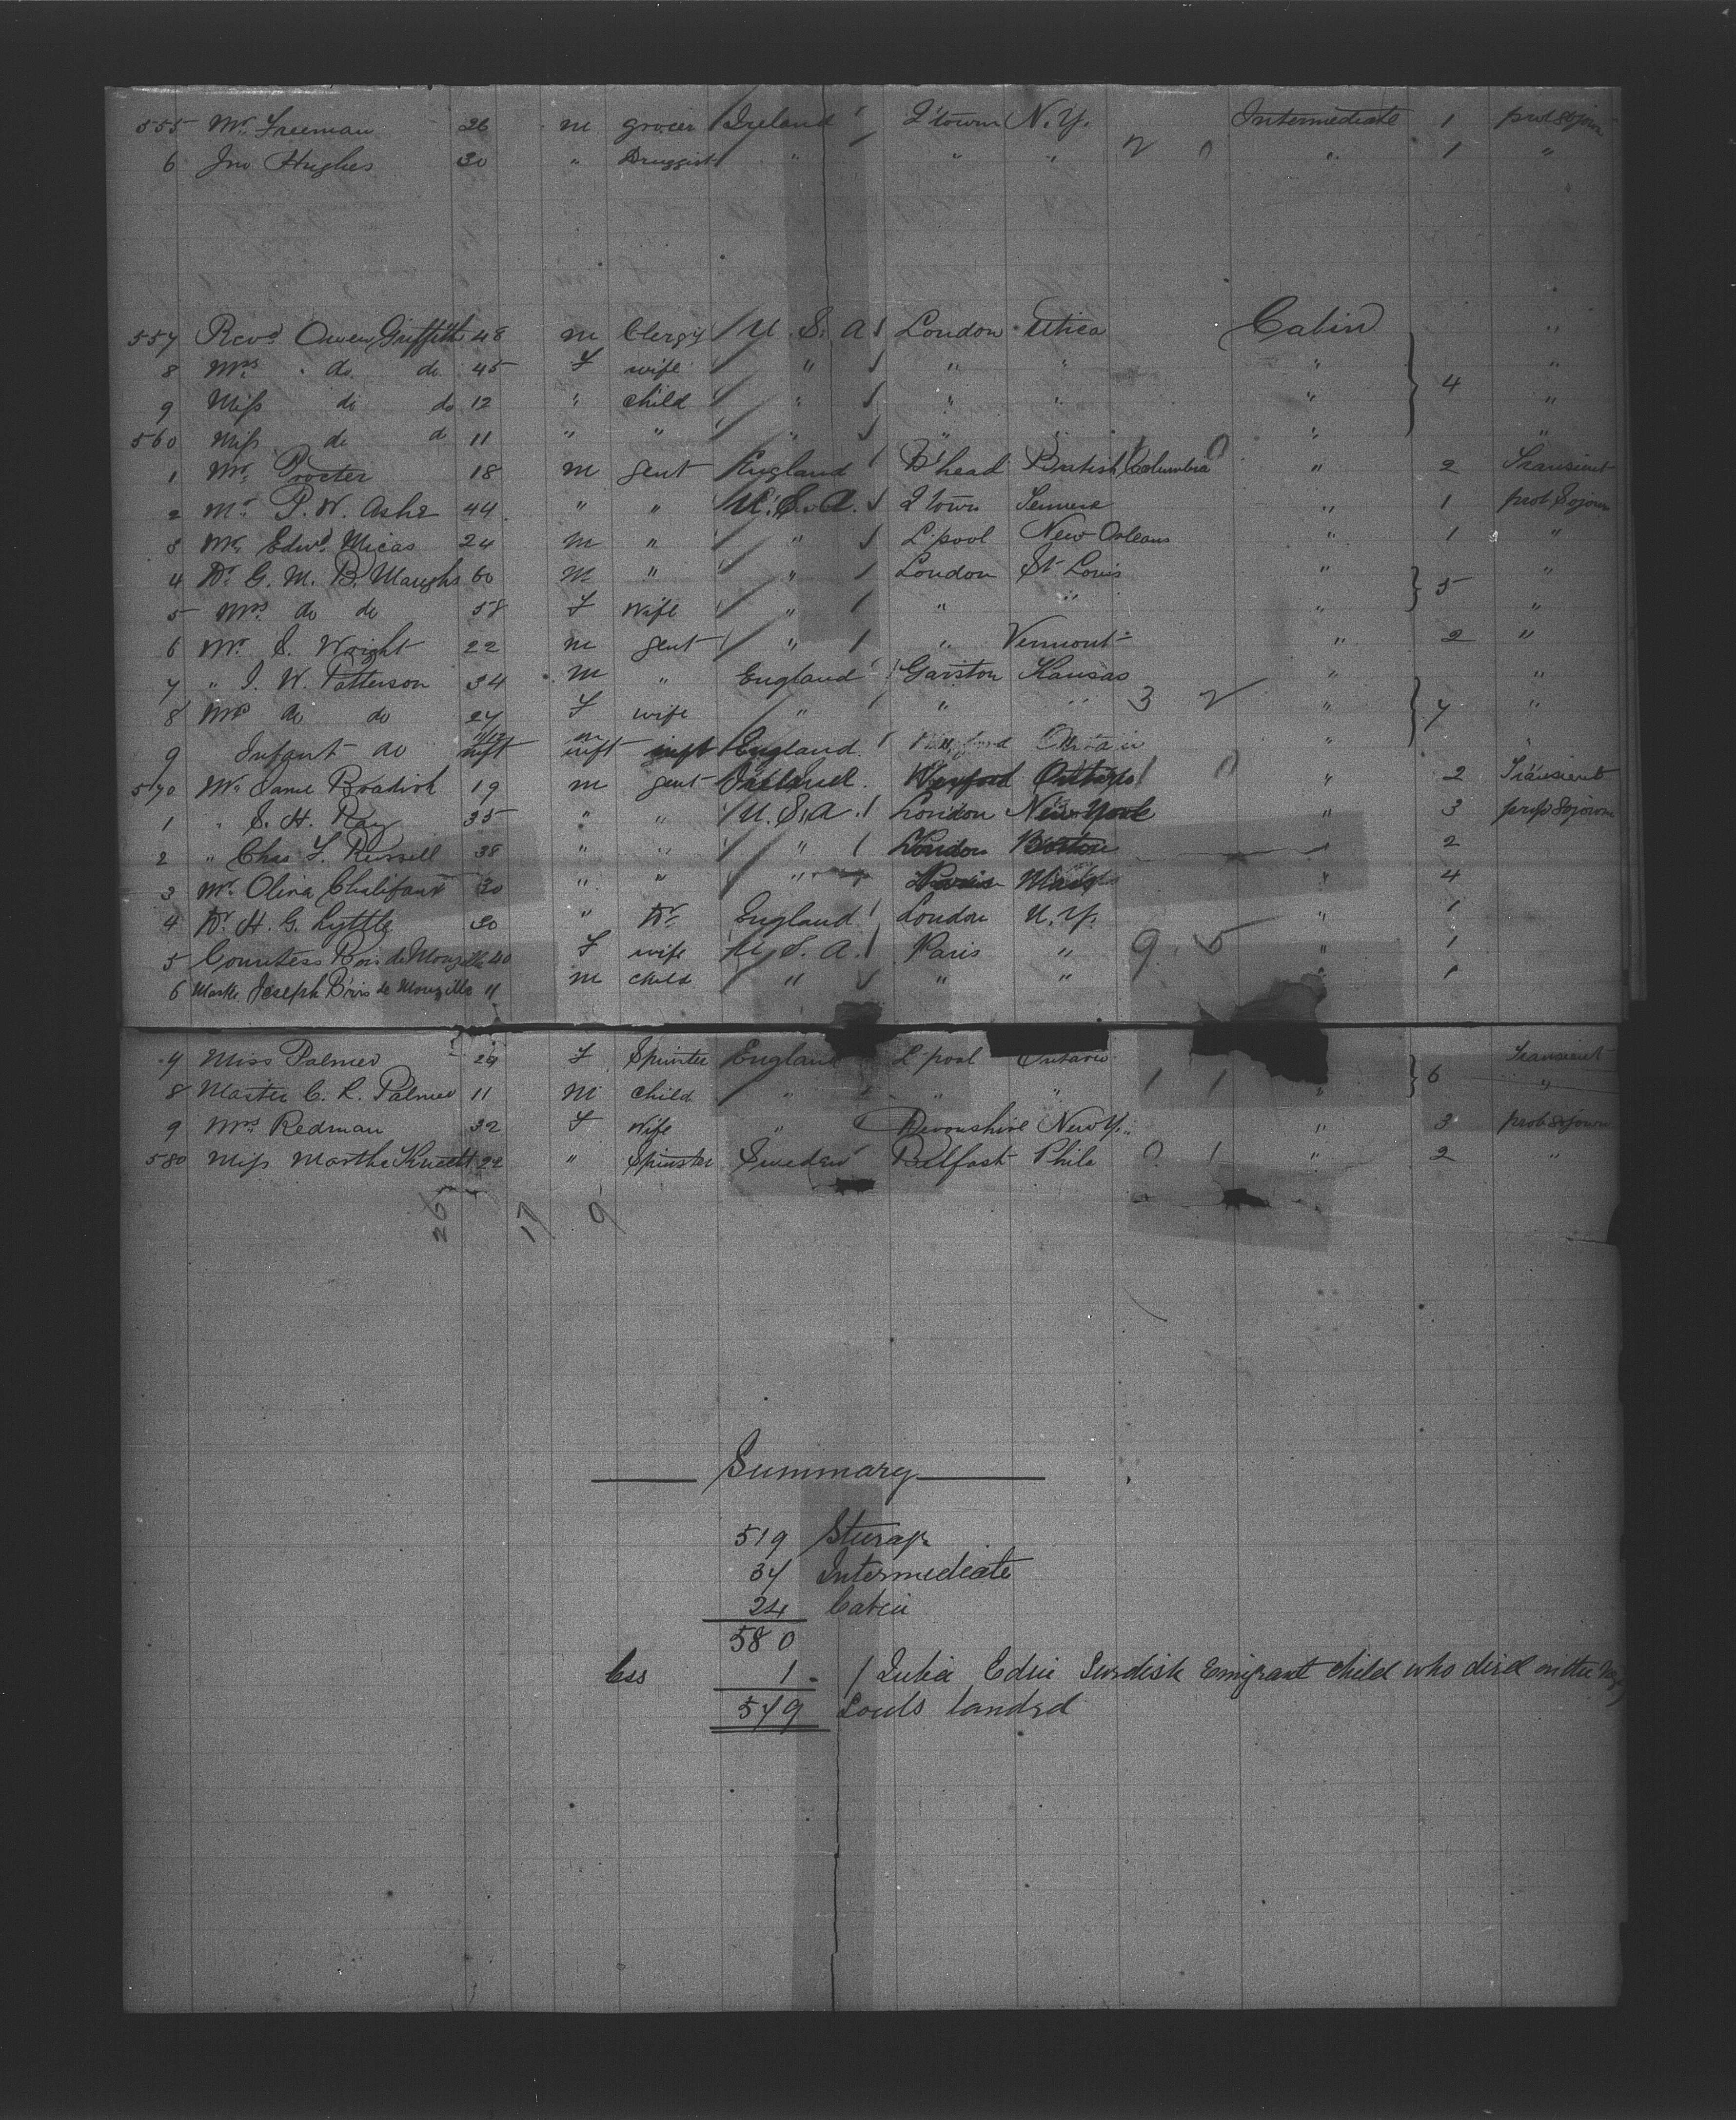 555 Mr. Freeman 26 m grocer Ireland Q'town N.Y. Intermediate 1 prot Sojourn
6 Jno Hughes 30 " Druggist " " " 2 0 " 1 "
557 Revd Owen Griffith 48 m Clergy U. S. A London Utica Cabin "
8 Mrs do do 45 F wife " " " " "
9 Miss do do 12 " child " " " " 4 "
560 Miss do do 11 " " " " " " "
1 Mr. Procter 18 m gent England B'head British Columbia 0 " 2 Transient
2 Mr. P. W. Ashe 44 " " U.S.A. Q'town " 1 prot Sojourn
3 Mr. Edwd. Micas 24 m " " L'pool New Orleans " 1 "
4 Dr. G. M. B. Maughs 60 m " " London St. Louis " 5 "
5 Mrs. do do 58 F Wife " " " " "
6 Mr. S. Wright 22 m gent " " Vermont " 2 "
7 " J. W. Patterson 34 m " England Garston Kansas " "
8 Mrs do do 27 F wife " " " 3 2 " 7 "
9 Infant do 11/12 inft m inft inft England "
570 Mr. 19 m gent Ireland Wexford Ontario 0 " 2 Transient
1 " S. H. Ray 35 " " U.S.A. London New York " 3 prot Sojourn
2 " Chas T. Russell 38 " " " London Boston " 2
3 Mr. Olina Chalifaux 30 " " " Paris Mass " 4
4 Dr. H. G. Lyttle 30 " Dr. England London N.Y. " 1
5 Countess Bois de 40 F wife U. S. A. Paris " 9 5 " 1
6 Mastr. Joseph Bois de 11 m child " " " " 1
7 Miss Palmer 29 F Spinster England L'pool Ontario 6 Transient
8 Master C. R. Palmer 11 m child " " " 1 1 " "
9 Mrs Redman 32 F Wife " Devonshire New Y. " 3 prot Sojourn
580 Miss Martha 22 " Spinster Sweden Belfast Phila 0 1 " 2 "
26 17 9
Summary
519 Steerage
37 Intermediate
24 Cabin
580
less 1 - / Edin Swedish Emigrant child who died on the
579 Souls landed